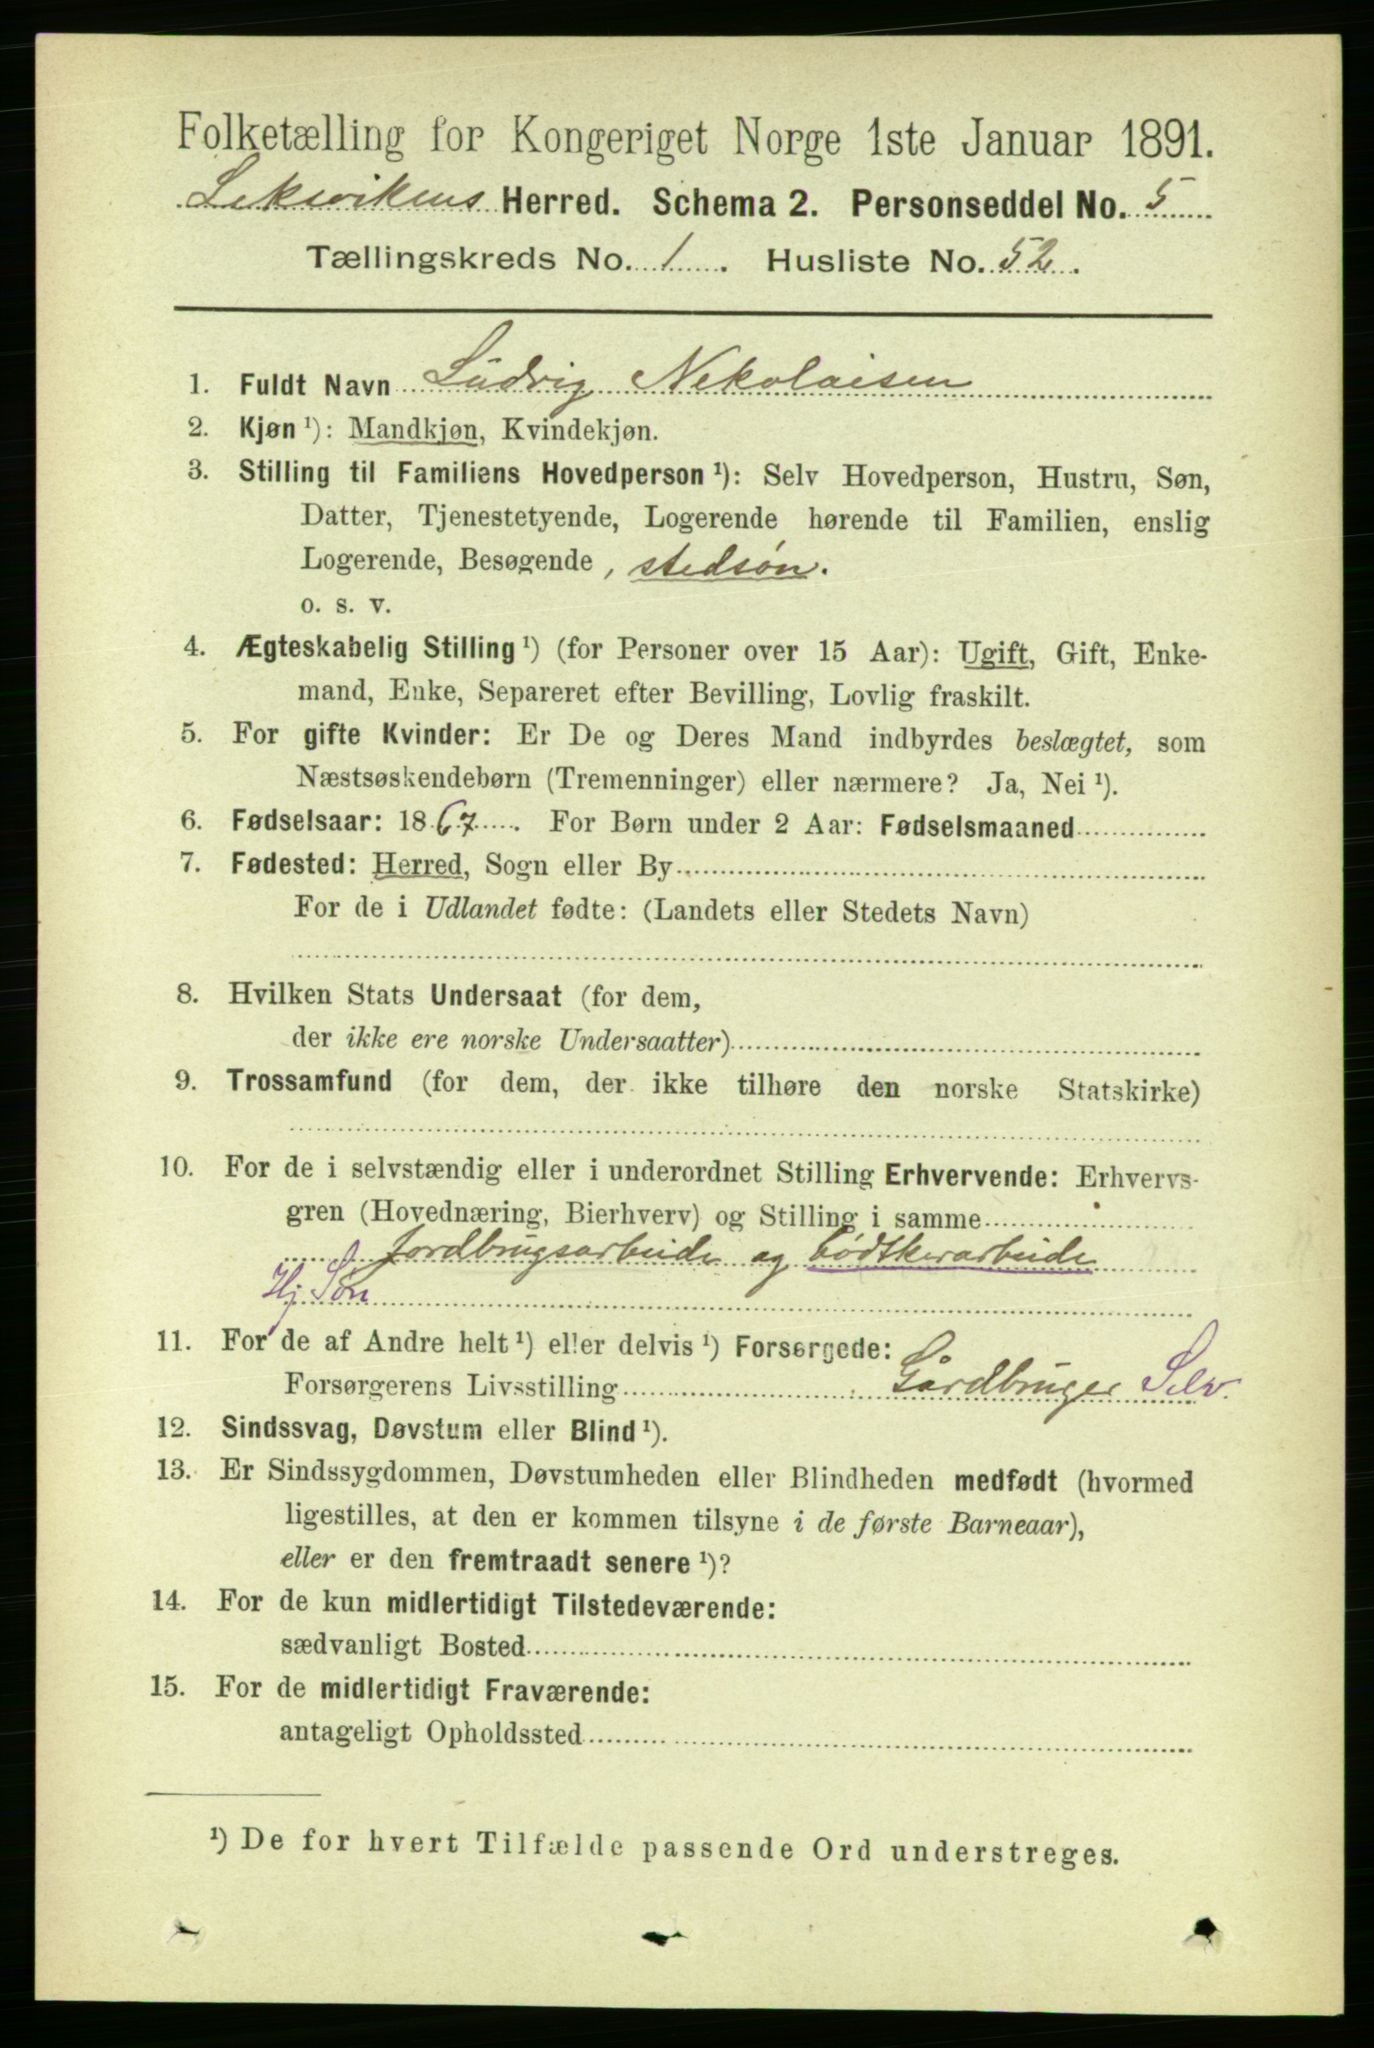 Folketælling for Kongeriget Norge 1ste Januar 1891.
Leksvikens Herred. Schema 2. Personseddel No. 5
Tællingskreds No. 1. Husliste No. 52.
1. Fuldt Navn Ludvig Nekolaisen
2. Kjøn ¹): Mandkjøn, Kvindekjøn.
3. Stilling til Familiens Hovedperson ¹): Selv Hovedperson, Hustru, Søn,
Datter, Tjenestetyende, Logerende hørende til Familien, enslig
Logerende, Besøgende, stedsøn.
o. s. v.
4. Ægteskabelig Stilling ¹) (for Personer over 15 Aar): Ugift, Gift, Enke-
mand, Enke, Separeret efter Bevilling, Lovlig fraskilt.
5. For gifte Kvinder: Er De og Deres Mand indbyrdes beslægtet, som
Næstsøskendebørn (Tremenninger) eller nærmere? Ja, Nei ¹).
6. Fødselsaar: 1867. For Børn under 2 Aar: Fødselsmaaned
7. Fødested: Herred, Sogn eller By
For de i Udlandet fødte: (Landets eller Stedets Navn)
8. Hvilken Stats Undersaat (for dem,
der ikke ere norske Undersaatter)
9. Trossamfund (for dem, der ikke tilhøre den norske Statskirke)
10. For de i selvstændig eller i underordnet Stilling Erhvervende: Erhvervs-
gren (Hovednæring, Bierhverv) og Stilling i samme
Jordbrugsarbeide og bødtkerarbeide
Hj. Søn
11. For de af Andre helt ¹) eller delvis ¹) Forsørgede:
Forsørgerens Livsstilling Gårdbruger Selv.
12. Sindssvag, Døvstum eller Blind ¹).
13. Er Sindssygdommen, Døvstumheden eller Blindheden medfødt (hvormed
ligestilles, at den er kommen tilsyne i de første Barneaar),
eller er den fremtraadt senere ¹)?
14. For de kun midlertidigt Tilstedeværende:
sædvanligt Bosted
15. For de midlertidigt Fraværende:
antageligt Opholdssted
¹) De for hvert Tilfælde passende Ord understreges.